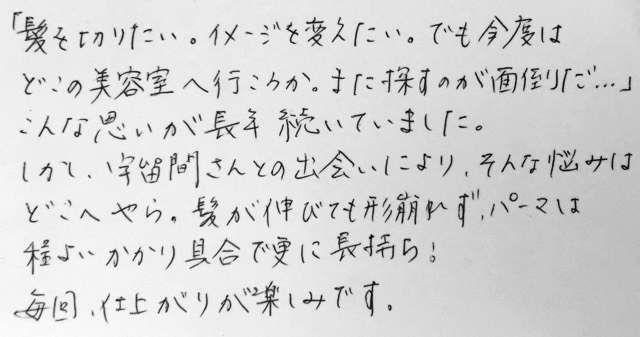 「髪を切りたい。イメージを変えたい。でも今度は
どこの美容室へ行こうか。また探すのが面倒だ…」
こんな思いが長年続いていました。
しかし、宇留間さんとの出会いにより、そんな悩みは
どこへやら。髪が伸びても形崩れず、パーマは
程よいかかり具合で更に長持ち!
毎回、仕上がりが楽しみです。